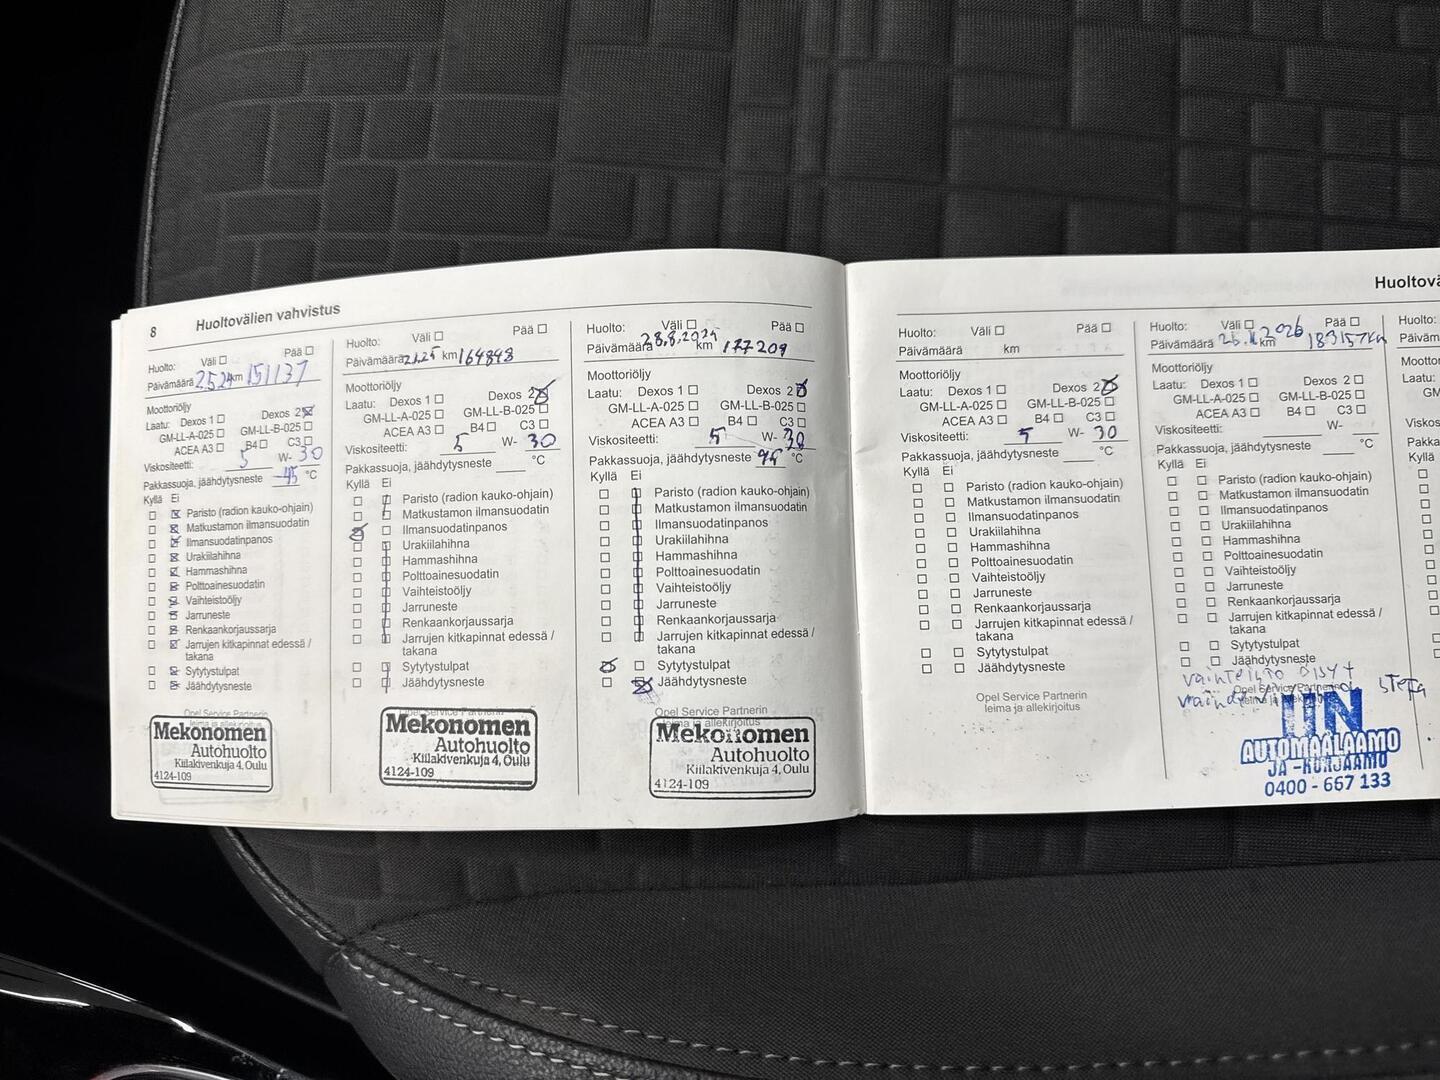 8 Huoltovälien vahvistus
Huolto: Väli ☐ Pää ☐
Päivämäärä 2.5.24 km 151137
Moottoriöljy
Laatu: Dexos 1 ☐ Dexos 2 ☒
GM-LL-A-025 ☐ GM-LL-B-025 ☐
ACEA A3 ☐ B4 ☐ C3 ☐
Viskositeetti: 5 W- 30
Pakkassuoja, jäähdytysneste -45 °C
Kyllä Ei
☐ ☒ Paristo (radion kauko-ohjain)
☐ ☒ Matkustamon ilmansuodatin
☐ ☒ Ilmansuodatinpanos
☐ ☒ Urakiilahihna
☐ ☒ Hammashihna
☐ ☒ Polttoainesuodatin
☐ ☒ Vaihteistoöljy
☐ ☒ Jarruneste
☐ ☒ Renkaankorjaussarja
☐ ☒ Jarrujen kitkapinnat edessä /
takana
☐ ☒ Sytytystulpat
☐ ☒ Jäähdytysneste
Opel Service Partnerin
leima ja allekirjoitus
Mekonomen
Autohuolto
Kiilakivenkuja 4, Oulu
4124-109
Huolto: Väli ☐ Pää ☐
Päivämäärä km 164848
Moottoriöljy
Laatu: Dexos 1 ☐ Dexos 2 ☒
GM-LL-A-025 ☐ GM-LL-B-025 ☐
ACEA A3 ☐ B4 ☐ C3 ☐
Viskositeetti: 5 W- 30
Pakkassuoja, jäähdytysneste °C
Kyllä Ei
☐ ☐ Paristo (radion kauko-ohjain)
☐ ☐ Matkustamon ilmansuodatin
☒ Ilmansuodatinpanos
☐ ☐ Urakiilahihna
☐ ☐ Hammashihna
☐ ☐ Polttoainesuodatin
☐ ☐ Vaihteistoöljy
☐ ☐ Jarruneste
☐ ☐ Renkaankorjaussarja
☐ ☐ Jarrujen kitkapinnat edessä /
takana
☐ ☐ Sytytystulpat
☐ ☐ Jäähdytysneste
Opel Service Partnerin
Mekonomen
Autohuolto
Kiilakivenkuja 4, Oulu
4124-109
Huolto: Väli ☐ Pää ☐
Päivämäärä 28.8.km 177209
Moottoriöljy
Laatu: Dexos 1 ☐ Dexos 2 ☒
GM-LL-A-025 ☐ GM-LL-B-025 ☐
ACEA A3 ☐ B4 ☐ C3 ☐
Viskositeetti: 5 W- 30
Pakkassuoja, jäähdytysneste °C
Kyllä Ei
☐ ☐ Paristo (radion kauko-ohjain)
☐ ☐ Matkustamon ilmansuodatin
☐ ☐ Ilmansuodatinpanos
☐ ☐ Urakiilahihna
☐ ☐ Hammashihna
☐ ☐ Polttoainesuodatin
☐ ☐ Vaihteistoöljy
☐ ☐ Jarruneste
☐ ☐ Renkaankorjaussarja
☐ ☐ Jarrujen kitkapinnat edessä /
takana
☒ ☐ Sytytystulpat
☐ ☒ Jäähdytysneste
Opel Service Partnerin
leima ja allekirjoitus
Mekonomen
Autohuolto
Kiilakivenkuja 4, Oulu
4124-109
Huolto: Väli ☐ Pää ☐
Päivämäärä km
Moottoriöljy
Laatu: Dexos 1 ☐ Dexos 2 ☒
GM-LL-A-025 ☐ GM-LL-B-025 ☐
ACEA A3 ☐ B4 ☐ C3 ☐
Viskositeetti: 5 W- 30
Pakkassuoja, jäähdytysneste °C
Kyllä Ei
☐ ☐ Paristo (radion kauko-ohjain)
☐ ☐ Matkustamon ilmansuodatin
☐ ☐ Ilmansuodatinpanos
☐ ☐ Urakiilahihna
☐ ☐ Hammashihna
☐ ☐ Polttoainesuodatin
☐ ☐ Vaihteistoöljy
☐ ☐ Jarruneste
☐ ☐ Renkaankorjaussarja
☐ ☐ Jarrujen kitkapinnat edessä /
takana
☐ ☐ Sytytystulpat
☐ ☐ Jäähdytysneste
Opel Service Partnerin
leima ja allekirjoitus
Huolto: Väli ☐ Pää ☐
Päivämäärä 2026 km 183157km
Moottoriöljy
Laatu: Dexos 1 ☐ Dexos 2 ☐
GM-LL-A-025 ☐ GM-LL-B-025 ☐
ACEA A3 ☐ B4 ☐ C3 ☐
Viskositeetti: W-
Pakkassuoja, jäähdytysneste °C
Kyllä Ei
☐ ☐ Paristo (radion kauko-ohjain)
☐ ☐ Matkustamon ilmansuodatin
☐ ☐ Ilmansuodatinpanos
☐ ☐ Urakiilahihna
☐ ☐ Hammashihna
☐ ☐ Polttoainesuodatin
☐ ☐ Vaihteistoöljy
☐ ☐ Jarruneste
☐ ☐ Renkaankorjaussarja
☐ ☐ Jarrujen kitkapinnat edessä /
takana
☐ ☐ Sytytystulpat
☐ ☐ Jäähdytysneste
AUTOMAALAAMO
JA -KORJAAMO
0400 - 667 133
Huolto: